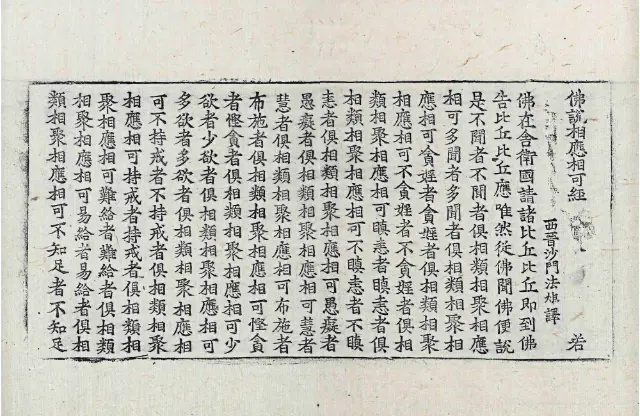 佛說相應相可經 若
西晉沙門法炬譯
佛在舍衛國請諸比丘比丘即到佛
告比丘比丘應唯然從佛聞佛便說
是不聞者不聞者俱相類相聚相應
相可多聞者多聞者俱相類相聚相
應相可貪婬者貪婬者俱相類相聚
相應相可不貪婬者不貪婬者俱相
類相聚相應相可瞋恚者瞋恚者俱
相類相聚相應相可不瞋恚者不瞋
恚者俱相類相聚相應相可愚癡者
愚癡者俱相類相聚相應相可慧者
慧者俱相類相聚相應相可布施者
布施者俱相類相聚相應相可慳貪
者慳貪者俱相類相聚相應相可少
欲者少欲者俱相類相聚相應相可
多欲者多欲者俱相類相聚相應相
可不持戒者不持戒者俱相類相聚
相應相可持戒者持戒者俱相類相
聚相應相可難給者難給者俱相類
相聚相應相可易給者易給者俱相
類相聚相應相可不知足者不知足